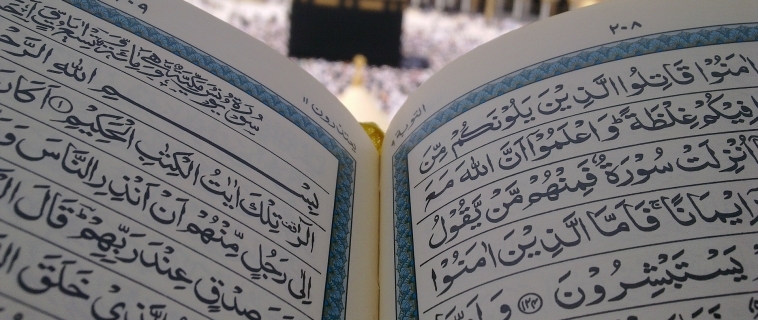 ٢٠٨
التوبة ٩
اٰمَنُوْا قَاتِلُوا الَّذِيْنَ يَلُوْنَكُمْ مِّنَ
فِيْكُمْ غِلْظَةً ؕ وَاعْلَمُوْۤا اَنَّ اللّٰهَ مَعَ
اُنْزِلَتْ سُوْرَةٌ فَمِنْهُمْ مَّنْ يَّقُوْلُ
اِيْمَانًا ۚ فَاَمَّا الَّذِيْنَ اٰمَنُوْا
يَسْتَبْشِرُوْنَ ﴿۱۲۴﴾ وَاَمَّا
٢٠٩
يعتذرون ١١
بِسْمِ اللّٰهِ الرَّحْ
الٓرٰ ۚ تِلْكَ اٰيٰتُ الْكِتٰبِ الْحَكِيْمِ ﴿۱﴾ اَكَانَ
اِلٰى رَجُلٍ مِّنْهُمْ اَنْ اَنْذِرِ النَّاسَ وَ
صِدْقٍ عِنْدَ رَبِّهِمْ ؕ قَالَ الْ
الَّذِيْ خَلَقَ